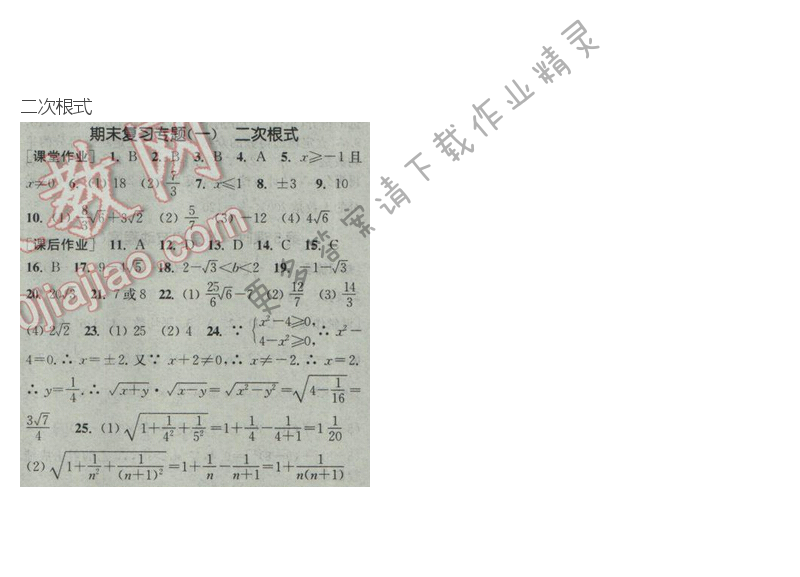 二次根式
期末复习专题(一) 二次根式
[课堂作业] 1. B 2. B 3. B 4. A 5. x≥-1且
x≠0 6. (1) 18 (2) 7/3 7. x≤1 8. ±3 9. 10
10. (1) 8/3√6+3√2 (2) 5/7 (3) -12 (4) 4√6
[课后作业] 11. A 12. D 13. D 14. C 15. C
16. B 17. 9-√5 18. 2-√3<b<2 19. -1-√3
20. 20√3 21. 7或8 22. (1) 25/6√6-7 (2) 12/7 (3) 14/3
(4) 2√2 23. (1) 25 (2) 4 24. ∵ {x²-4≥0, 4-x²≥0, ∴ x²-
4=0. ∴ x=±2. 又∵ x+2≠0, ∴ x≠-2. ∴ x=2.
∴ y=1/4. ∴ √(x+y)·√(x-y)=√(x²-y²)=√(4-1/16)=
3√7/4 25. (1) √(1+1/4²+1/5²)=1+1/4-1/(4+1)=1 1/20
(2) √(1+1/n²+1/(n+1)²)=1+1/n-1/(n+1)=1+1/(n(n+1))
更多答案请下载作业精灵
教网
0jiajiao.com